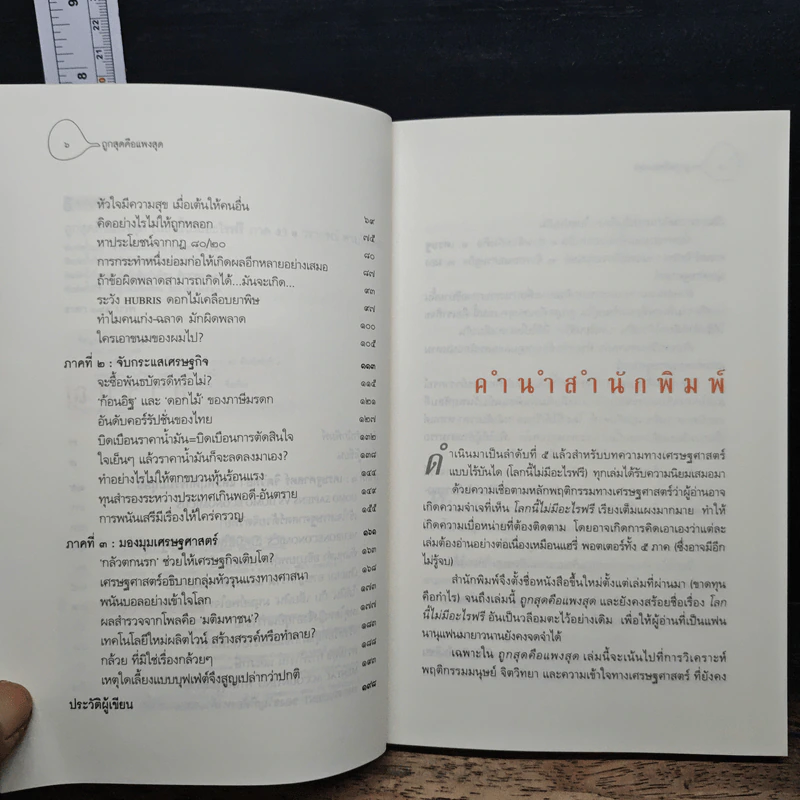 ๖ ถูกสุดคือแพงสุด
หัวใจมีความสุข เมื่อเต้นให้คนอื่น ๖๙
คิดอย่างไรไม่ให้ถูกหลอก ๗๕
หาประโยชน์จากกฎ ๘๐/๒๐ ๘๐
การกระทำหนึ่งย่อมก่อให้เกิดผลอีกหลายอย่างเสมอ ๘๗
ถ้าข้อผิดพลาดสามารถเกิดได้...มันจะเกิด... ๙๓
ระวัง HUBRIS ดอกไม้เคลือบยาพิษ ๙๗
ทำไมคนเก่ง-ฉลาด มักผิดพลาด ๑๐๐
ใครเอาขนมของผมไป? ๑๐๕
ภาคที่ ๒ : จับกระแสเศรษฐกิจ ๑๑๓
จะซื้อพันธบัตรดีหรือไม่? ๑๑๕
'ก้อนอิฐ' และ 'ดอกไม้' ของภาษีมรดก ๑๒๑
อันดับคอร์รัปชั่นของไทย ๑๒๗
บิดเบือนราคาน้ำมัน=บิดเบือนการตัดสินใจ ๑๓๒
ใจเย็นๆ แล้วราคาน้ำมันก็จะลดลงมาเอง? ๑๓๘
ทำอย่างไรไม่ให้ตกขบวนหุ้นร้อนแรง ๑๔๔
ทุนสำรองระหว่างประเทศเกินพอดี-อันตราย ๑๔๙
การพนันเสรีมีเรื่องให้ใคร่ครวญ ๑๕๕
ภาคที่ ๓ : มองมุมเศรษฐศาสตร์ ๑๖๑
'กลัวตกนรก' ช่วยให้เศรษฐกิจเติบโต? ๑๖๓
เศรษฐศาสตร์อธิบายกลุ่มหัวรุนแรงทางศาสนา ๑๖๘
พนันบอลอย่างเข้าใจโลก ๑๗๓
ผลสำรวจจากโพลคือ 'มติมหาชน'? ๑๗๗
เทคโนโลยีใหม่ผลิตไวน์ สร้างสรรค์หรือทำลาย? ๑๘๔
กล้วย ที่มิใช่เรื่องกล้วยๆ ๑๘๘
เหตุใดเลี้ยงแบบบุฟเฟต์จึงสูญเปล่ากว่าปกติ ๑๙๓
ประวัติผู้เขียน ๑๙๘
คำนำสำนักพิมพ์
ดำเนินมาเป็นลำดับที่ ๕ แล้วสำหรับบทความทางเศรษฐศาสตร์
แบบไร้บันได (โลกนี้ไม่มีอะไรฟรี) ทุกเล่มได้รับความนิยมเสมอมา
ด้วยความเชื่อตามหลักพฤติกรรมทางเศรษฐศาสตร์ว่าผู้อ่านอาจ
เกิดความจำเจที่เห็น โลกนี้ไม่มีอะไรฟรี เรียงเต็มแผงมากมาย ทำให้
เกิดความเบื่อหน่ายที่ต้องติดตาม โดยอาจเกิดการคิดเอาเองว่าแต่ละ
เล่มต้องอ่านอย่างต่อเนื่องเหมือนแฮรี่ พอตเตอร์ทั้ง ๕ ภาค (ซึ่งอาจมีอีก
ไม่รู้จบ)
สำนักพิมพ์จึงตั้งชื่อหนังสือขึ้นใหม่ตั้งแต่เล่มที่ผ่านมา (ขาดทุน
คือกำไร) จนถึงเล่มนี้ ถูกสุดคือแพงสุด และยังคงสร้อยชื่อเรื่อง โลก
นี้ไม่มีอะไรฟรี อันเป็นวลีอมตะไว้อย่างเดิม เพื่อให้ผู้อ่านที่เป็นแฟน
นานุแฟนมายาวนานยังคงจดจำได้
เฉพาะใน ถูกสุดคือแพงสุด เล่มนี้จะเน้นไปที่การวิเคราะห์
พฤติกรรมมนุษย์ จิตวิทยา และความเข้าใจทางเศรษฐศาสตร์ ที่ยังคง